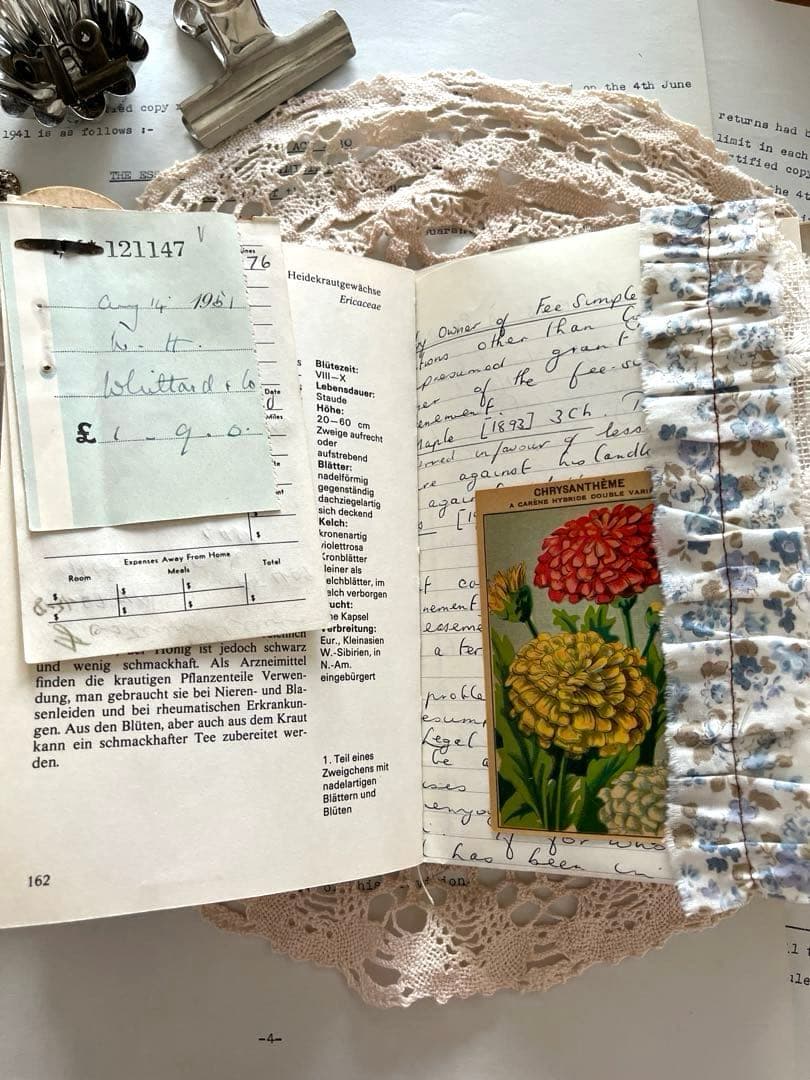 on the 4th June
ied copy
1941 is as follows :-
THE ES
returns had
limit in each
rtified copy
the 4t
121147
Aug 14 1951
W. H.
Whittard & Co
£ 1 - 9. 0.
76
Date
Miles
$
Expenses Away From Home
Room Meals Total
$ $ $ $
$ $ $ $
Heidekrautgewächse
Ericaceae
Blütezeit:
VIII–X
Lebensdauer:
Staude
Höhe:
20–60 cm
Zweige aufrecht
oder
aufstrebend
Blätter:
nadelförmig
gegenständig
dachziegelartig
sich deckend
Kelch:
kronenartig
violettrosa
Kronblätter
kleiner als
elchblätter, im
elch verborgen
rucht:
ne Kapsel
erbreitung:
Eur., Kleinasien
W.-Sibirien, in
N.-Am.
eingebürgert
Honig ist jedoch schwarz
und wenig schmackhaft. Als Arzneimittel
finden die krautigen Pflanzenteile Verwen-
dung, man gebraucht sie bei Nieren- und Bla-
senleiden und bei rheumatischen Erkrankun-
gen. Aus den Blüten, aber auch aus dem Kraut
kann ein schmackhafter Tee zubereitet wer-
den.
1. Teil eines
Zweigchens mit
nadelartigen
Blättern und
Blüten
162
Owner of Fee Simple
tions other than
presumed grant
er of the fee-si
enement.
aple [1893] 3 Ch.
in favour of less
re against his landl
again
[19
co
nement
easeme
a ter
proble
esum
Legal
be a
ses
enjoy
if for who
has been
CHRYSANTHÈME
A CARÈNE HYBRIDE DOUBLE VARI
his
-4-